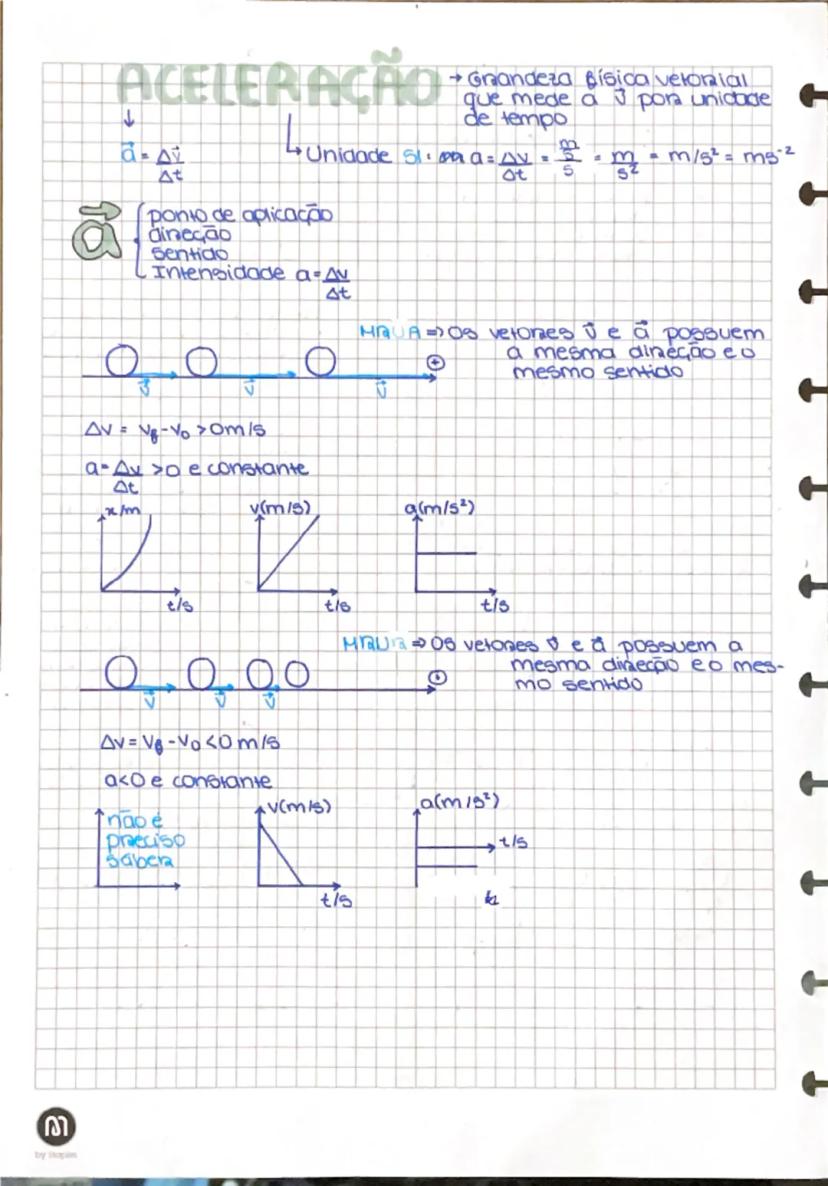 ACELERAÇÃO → Grandeza física vetorial
que mede a v⃗ por unidade
de tempo
↓
a⃗ = Δv⃗/Δt
↳ Unidade SI: a = Δv/Δt = (m/s)/s = m/s² = m/s² = ms⁻²
a⃗
ponto de aplicação
direção
sentido
Intensidade a = Δv/Δt
MRUA => Os vetores v⃗ e a⃗ possuem
a mesma direção e o
mesmo sentido
+
v⃗ v⃗ v⃗
Δv = vf - v0 > 0 m/s
a = Δv/Δt > 0 e constante
x/m v(m/s) a(m/s²)
t/s t/s t/s
MRUR => Os vetores v⃗ e a⃗ possuem a
mesma direção e o mes-
mo sentido
+
v⃗ v⃗ v⃗
Δv = vf - v0 < 0 m/s
a<0 e constante
não é
preciso
saber
v(m/s) a(m/s²)
t/s
t/s
by Mapies